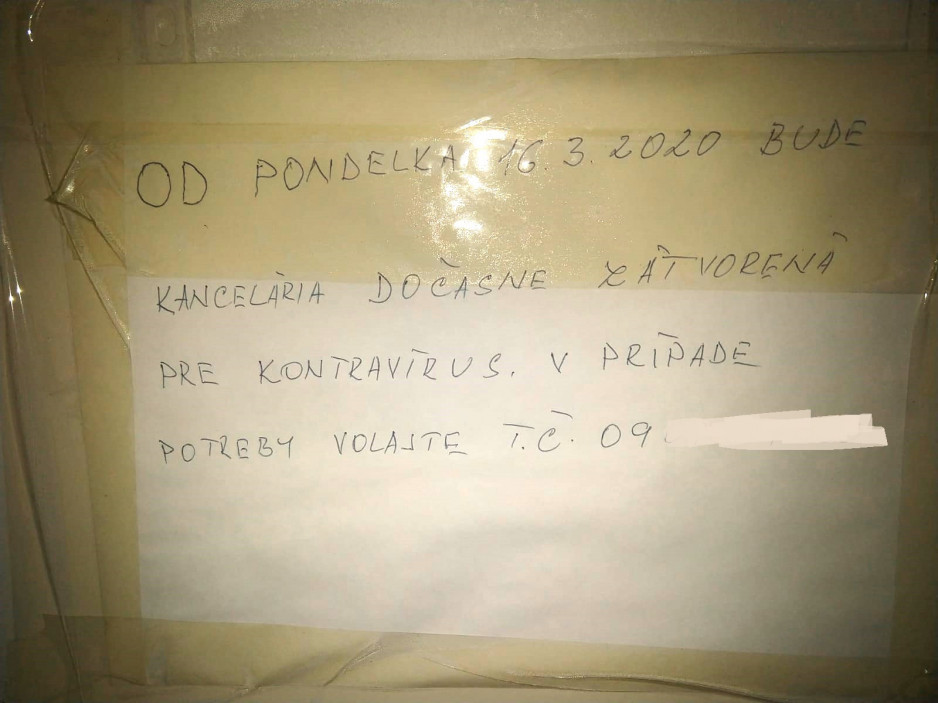 OD PONDELKA 16.3.2020 BUDE
KANCELÁRIA DOČASNE ZÁTVORENÁ
PRE KONTRAVÍRUS. V PRÍPADE
POTREBY VOLAJTE T.Č. 09